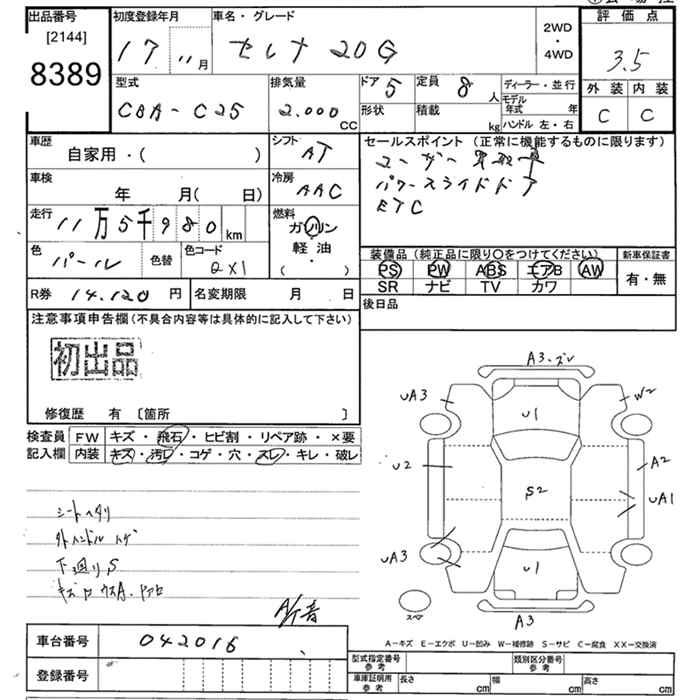 出品番号
[2144]
8389
初度登録年月
17 11月
車名・グレード
セレナ 20G
2WD
・
4WD
評価点
3.5
外装 内装
C C
型式
CBA-C25
排気量
2.000
CC
ドア 5
形状
定員 8 人
積載 kg
ディーラー・並行
モデル年式 年
ハンドル 左・右
車歴
自家用・( )
シフト
AT
車検
年 月( 日)
冷房
AAC
走行
11万5千980 km
燃料
ガソリン
軽油
( ・ )
色
パール
色替
色コード
QX1
R券 14.120 円
名変期限 月 日
セールスポイント (正常に機能するものに限ります)
ユーザー買取車
パワースライドドア
ETC
装備品 (純正品に限り〇をつけてください)
PS PW ABS エアB AW
SR ナビ TV カワ
新車保証書
有・無
後日品
注意事項申告欄(不具合内容等は具体的に記入して下さい)
初出品
修復歴 有 〔箇所 〕
検査員
記入欄
FW キズ・飛石・ヒビ割・リペア跡・×要
内装 キズ・汚レ・コゲ・穴・スレ・キレ・破レ
シートヘタリ
外ハンドルハゲ
下回りS
A3.ズレ
UA3
W2
U1
U2
A2
S2
UA1
UA3
U1
スペア
A3
A-キズ E-エクボ U-凹み W-補修跡 S-サビ C-腐食 XX-交換済
車台番号 042016
登録番号
型式指定番号
参考
類別区分番号
参考
車庫証明用
参考
長さ cm 幅 cm 高さ cm